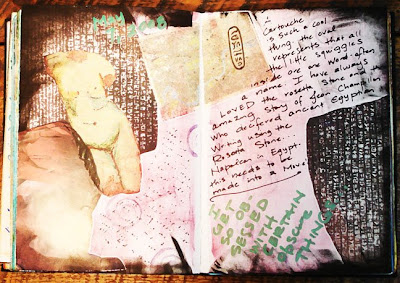 May
a
Cartouche
is such a cool
thing. the oval
represents that all
the little squiggles
inside are one word-often
a name. I have always
LOVED the rosetta stone and
amazing story of Jean Champllin
who deciferd ancient Egyptian
Writing using the
Rosetta Stone.
Napolean in Egypt.
this needs to be
made into a Movie
I GET
SO OB
SESSED
WITH
CERTAIN
OBSCURE
THINGS